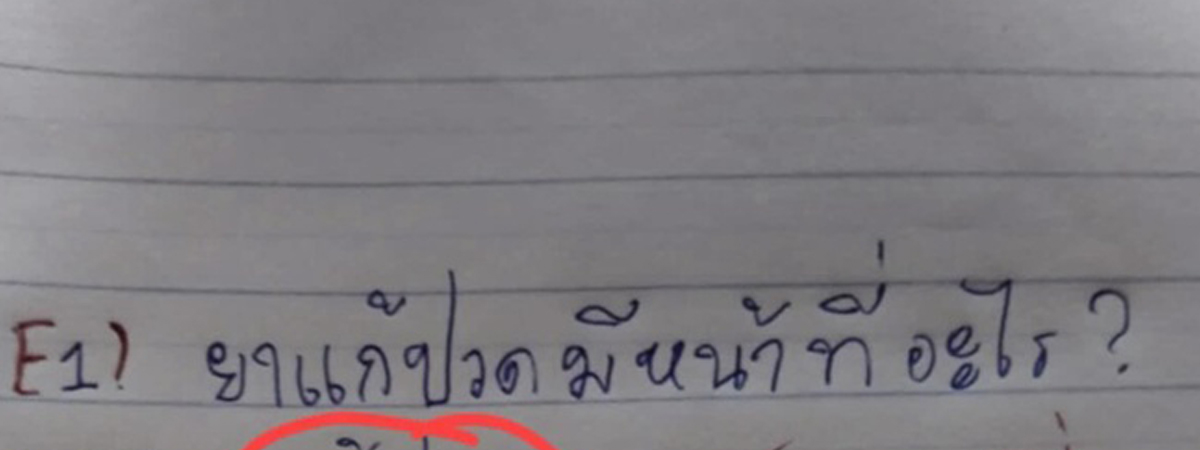 E1) ยาแก้ปวดมีหน้าที่อะไร?